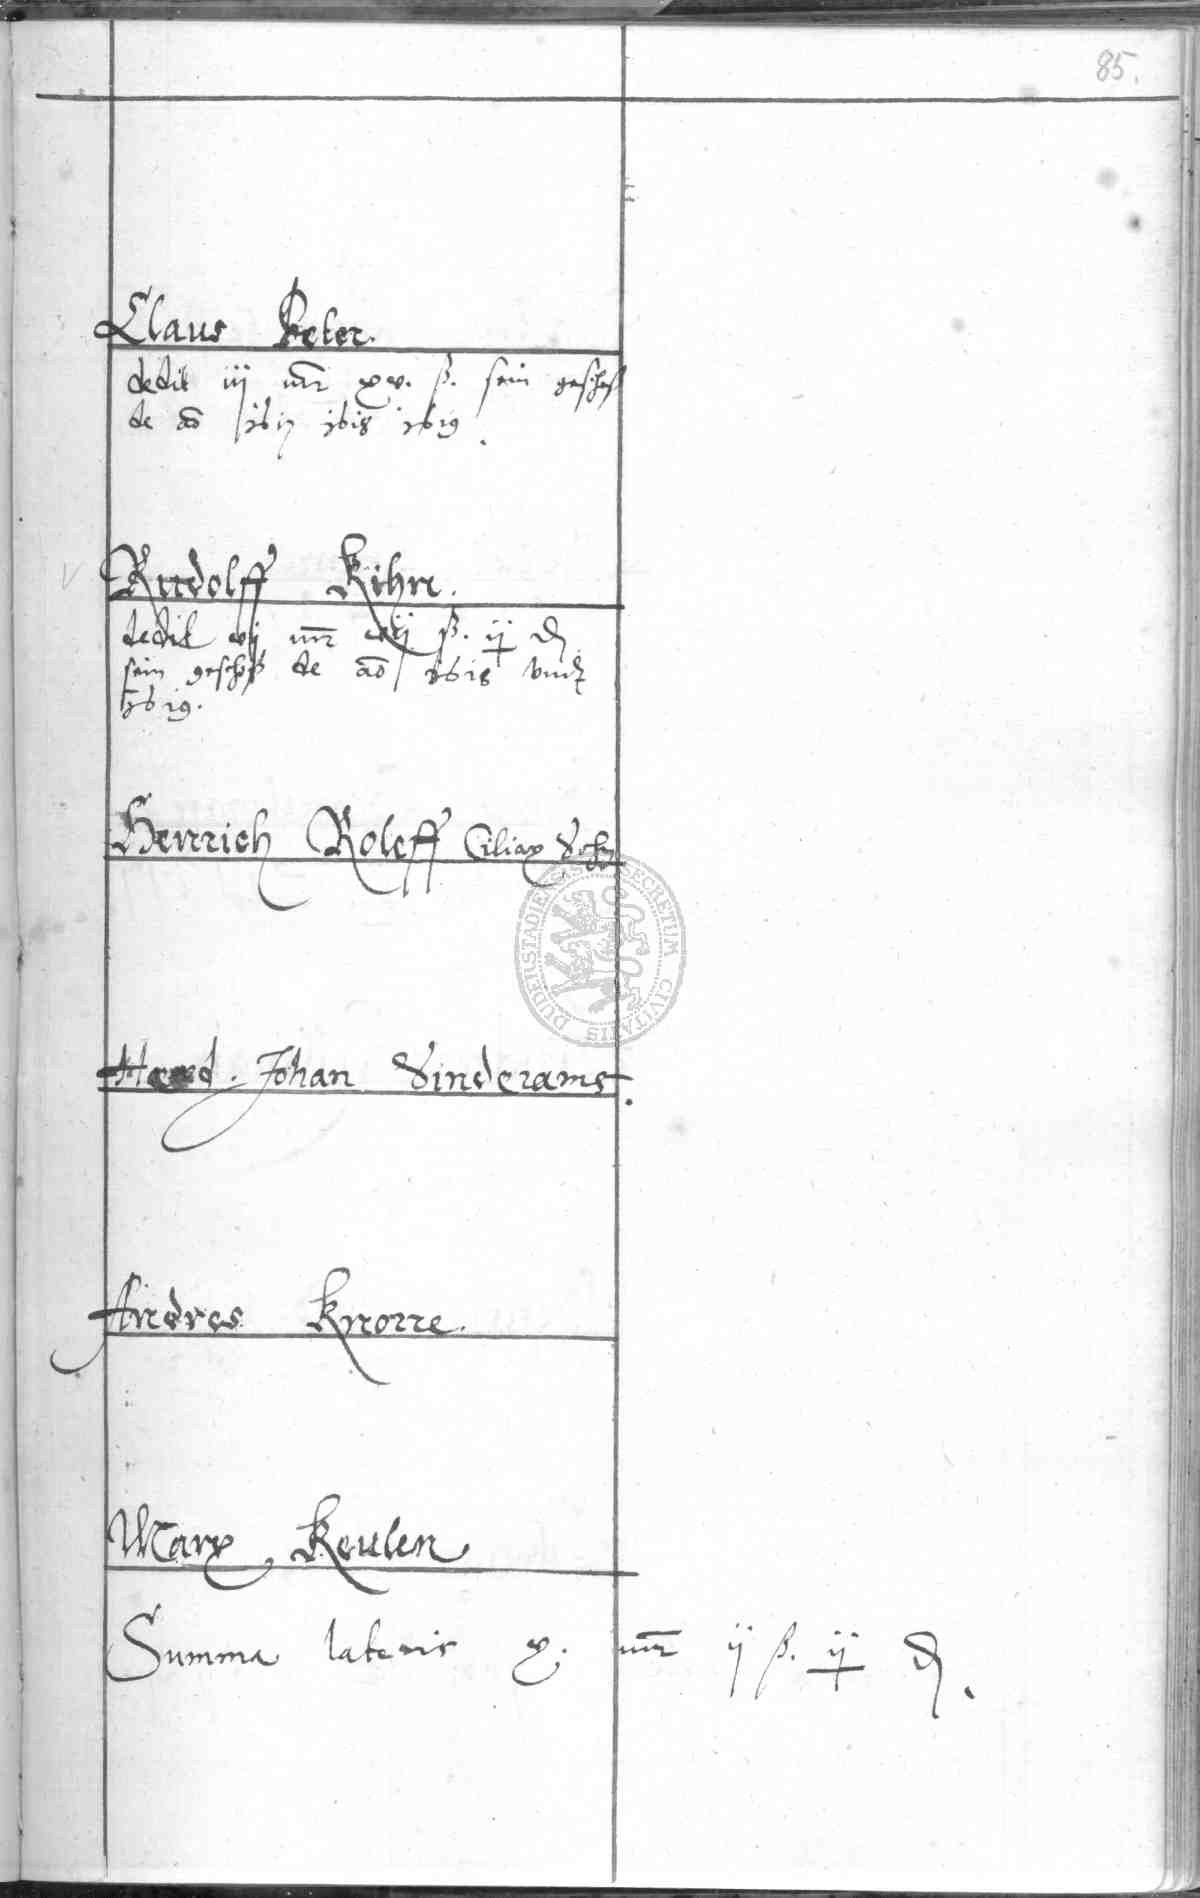 85.
Claus Peter.
dedit iij mr xv. ß. sein geschoß
de ao 1617 1618 1619
Rudolff Kühn.
dedit vj mr vij ß. ij ₰
sein geschoß de ao 1618 vnd
1619.
Henrich Roleff Ciliax
Johan Sinderams
Andres Knorre.
Marx Keulen
Summa lateris x. mr ij ß. ij ₰.
SECRETUM CIVITATIS DUDERSTADIENSIS